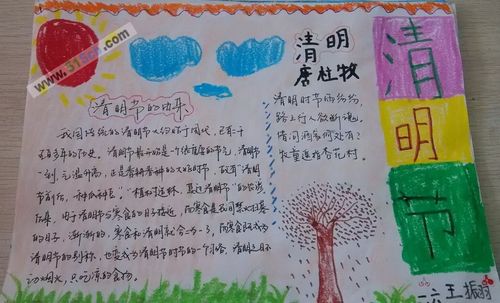 清明
唐杜牧
清
明
节
清明节的由来
我国传统的清明节大约始于周代，已有二千
五百多年的历史。清明节最开始是一个很重要的节气，清明
一到，气温升高，正是春耕春种的大好时节，故有"清明
前后，种瓜种豆。""植树造林，莫过清明"的农谚
后来，由于清明与寒食的日子接近，而寒食是民间禁火扫墓
的日子，渐渐的，寒食和清明就合为一了，而寒食既成为
清明节的别称，也变成为清明节时节的一个习俗，清明之日不
动烟火，只吃凉的食物。
清明时节雨纷纷，
路上行人欲断魂。
借问酒家何处有？
牧童遥指杏花村。
六 王振羽